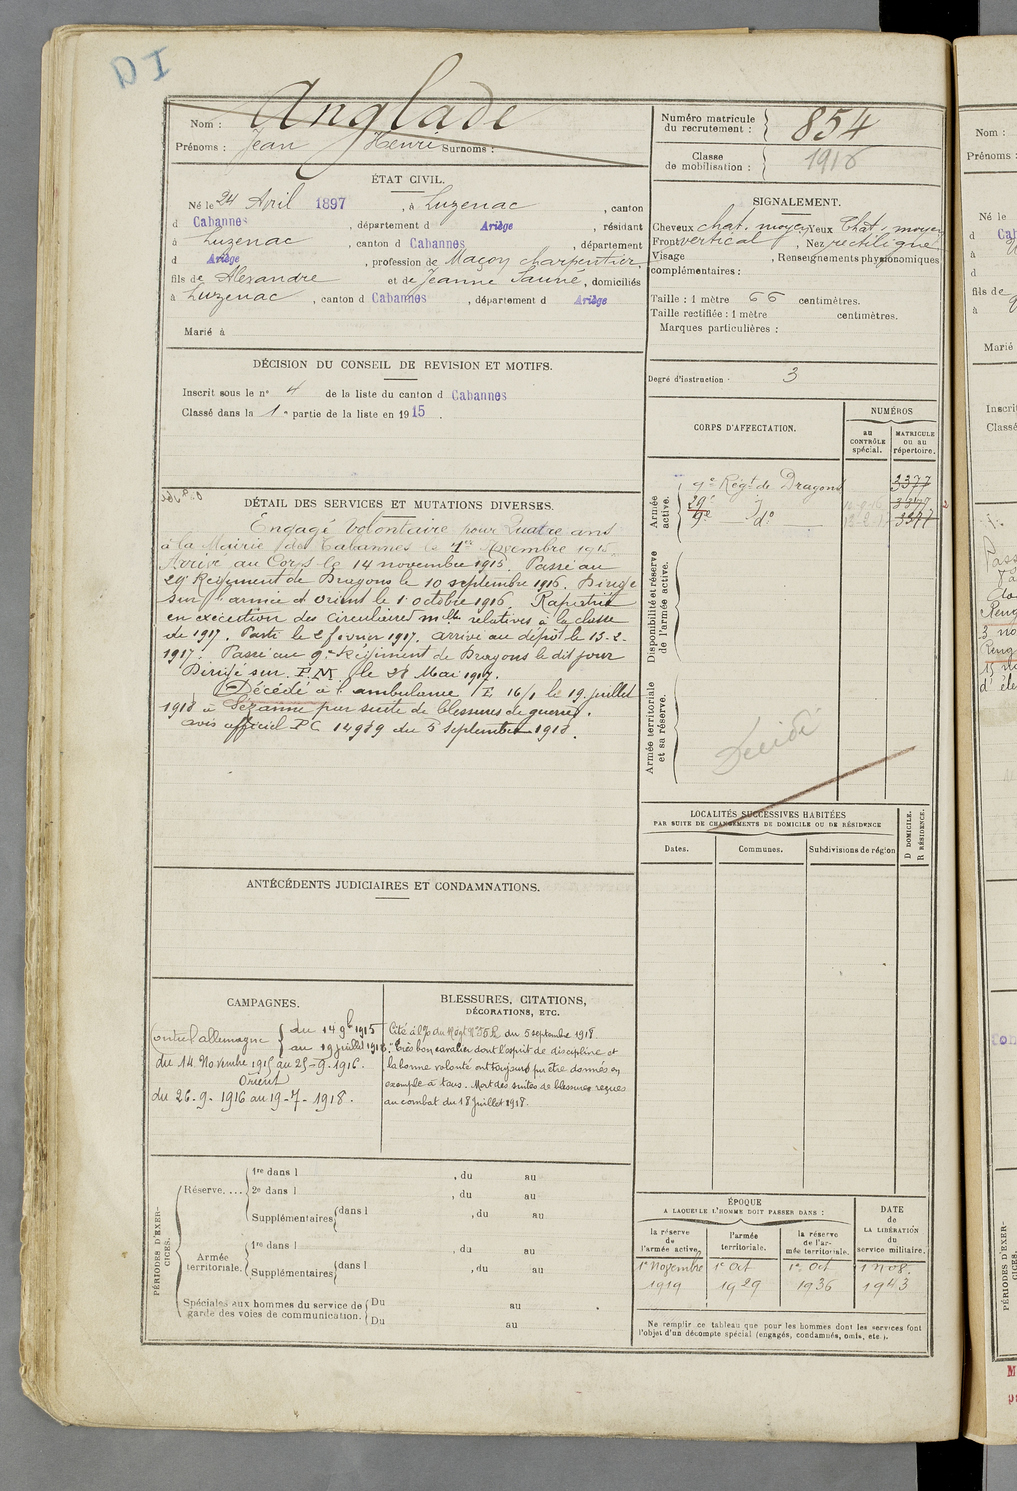 DI
Nom : Anglade
Prénoms : Jean Henri Surnoms :
Numéro matricule du recrutement : 854
Classe de mobilisation : 1916
ÉTAT CIVIL.
Né le 24 Avril 1897, à Luzenac, canton
d Cabannes, département d Ariège, résidant
à Luzenac, canton d Cabannes, département
d Ariège, profession de Maçon charpentier,
fils de Alexandre et de Jeanne Saurié, domiciliés
à Luzenac, canton d Cabannes, département d Ariège
Marié à
SIGNALEMENT.
Cheveux chat. moyen Yeux Chat. moyen
Front vertical, Nez rectiligne
Visage , Renseignements physionomiques
complémentaires :
Taille : 1 mètre 66 centimètres.
Taille rectifiée : 1 mètre centimètres.
Marques particulières :
DÉCISION DU CONSEIL DE REVISION ET MOTIFS.
Inscrit sous le n° 4 de la liste du canton d Cabannes
Classé dans la 1re partie de la liste en 1915.
Degré d'instruction : 3
CORPS D'AFFECTATION.
NUMÉROS
au CONTRÔLE spécial.
MATRICULE ou au répertoire.
Armée active.
9e Régt de Dragons 3377
29e do 3377
9e do 3377
Disponibilité et réserve de l'armée active.
Armée territoriale et sa réserve.
Décédé
DÉTAIL DES SERVICES ET MUTATIONS DIVERSES.
Engagé volontaire pour Quatre ans
à la Mairie des Cabannes le 1er Novembre 1915
Arrivé au Corps le 14 novembre 1915. Passé au
29e Régiment de Dragons le 10 septembre 1916. Dirigé
sur l'armée d'Orient le 1 octobre 1916. Rapatrié
en exécution des circulaires mlles relatives à la classe
de 1917. Parti le 2 février 1917. arrivé au dépôt le 13-2-
1917. Passé au 9e Régiment de Dragons le dit jour
Dirigé sur P.M. le 28 Mai 1917.
Décédé à l'ambulance 16/1 le 19 juillet
1918 à Sézanne par suite de blessures de guerre.
avis officiel PC 14989 du 5 septembre 1918.
LOCALITÉS SUCCESSIVES HABITÉES
PAR SUITE DE CHANGEMENTS DE DOMICILE OU DE RÉSIDENCE
Dates. Communes. Subdivisions de région
D DOMICILE. R RÉSIDENCE.
ANTÉCÉDENTS JUDICIAIRES ET CONDAMNATIONS.
CAMPAGNES.
Contre l'allemagne du 14 9bre 1915
au 19 juillet 1918
du 14 Novembre 1915 au 25-9-1916.
Orient
du 26-9-1916 au 19-7-1918.
BLESSURES, CITATIONS,
DÉCORATIONS, ETC.
Cité à l'O/ du Régt du 5 septembre 1918.
"Très bon cavalier dont l'esprit de discipline et
la bonne volonté ont toujours pu être donnés en
exemple à tous. Mort des suites de blessures reçues
au combat du 18 juillet 1918.
PÉRIODES D'EXERCICES.
Réserve....
1re dans l , du au
2e dans l , du au
Supplémentaires dans l , du au
Armée territoriale.
1re dans l , du au
Supplémentaires dans l , du au
Spéciales aux hommes du service de Du au
garde des voies de communication. Du au
ÉPOQUE
A LAQUELLE L'HOMME DOIT PASSER DANS :
la réserve de l'armée active,
l'armée territoriale.
la réserve de l'armée territoriale.
DATE de LA LIBÉRATION du service militaire.
1er Novembre 1er Oct 1er Oct 1 nov.
1919 1929 1936 1943
Ne remplir ce tableau que pour les hommes dont les services font
l'objet d'un décompte spécial (engagés, condamnés, omis, etc.).
Nom :
Prénoms :
Né le
fils de
Marié